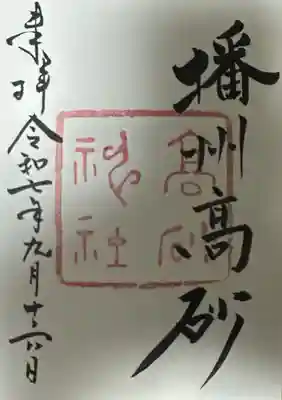 播州高砂
高砂
神社
奉拝 令和七年九月十 日